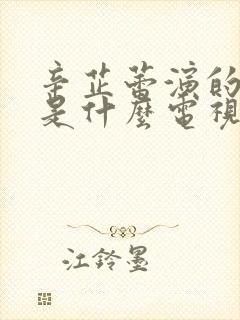 辛芷蕾演的
是什麼電視
江鈴墨